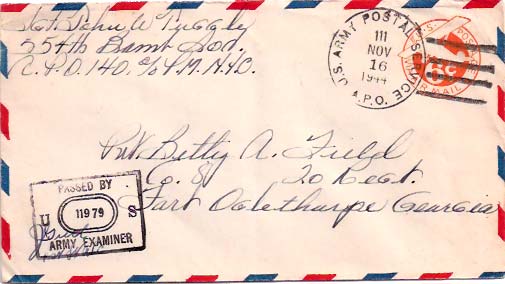 Sgt. John W Tuggle
554th Bomb Sqd.
A.P.O. 140. c/o P.M. N.Y.C.
U.S. ARMY POSTAL SERVICE
111
NOV
16
1944
A.P.O.
U.S. POSTAGE
6C
VIA AIR MAIL
Pvt. Betty A. Field
Co. 8 20 Regt.
Fort Oglethorpe Georgia
PASSED BY
U 11979 S
ARMY EXAMINER